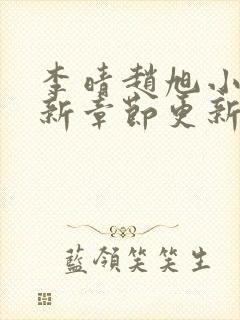 李晴趙旭小
新章節更新
藍領笑笑生